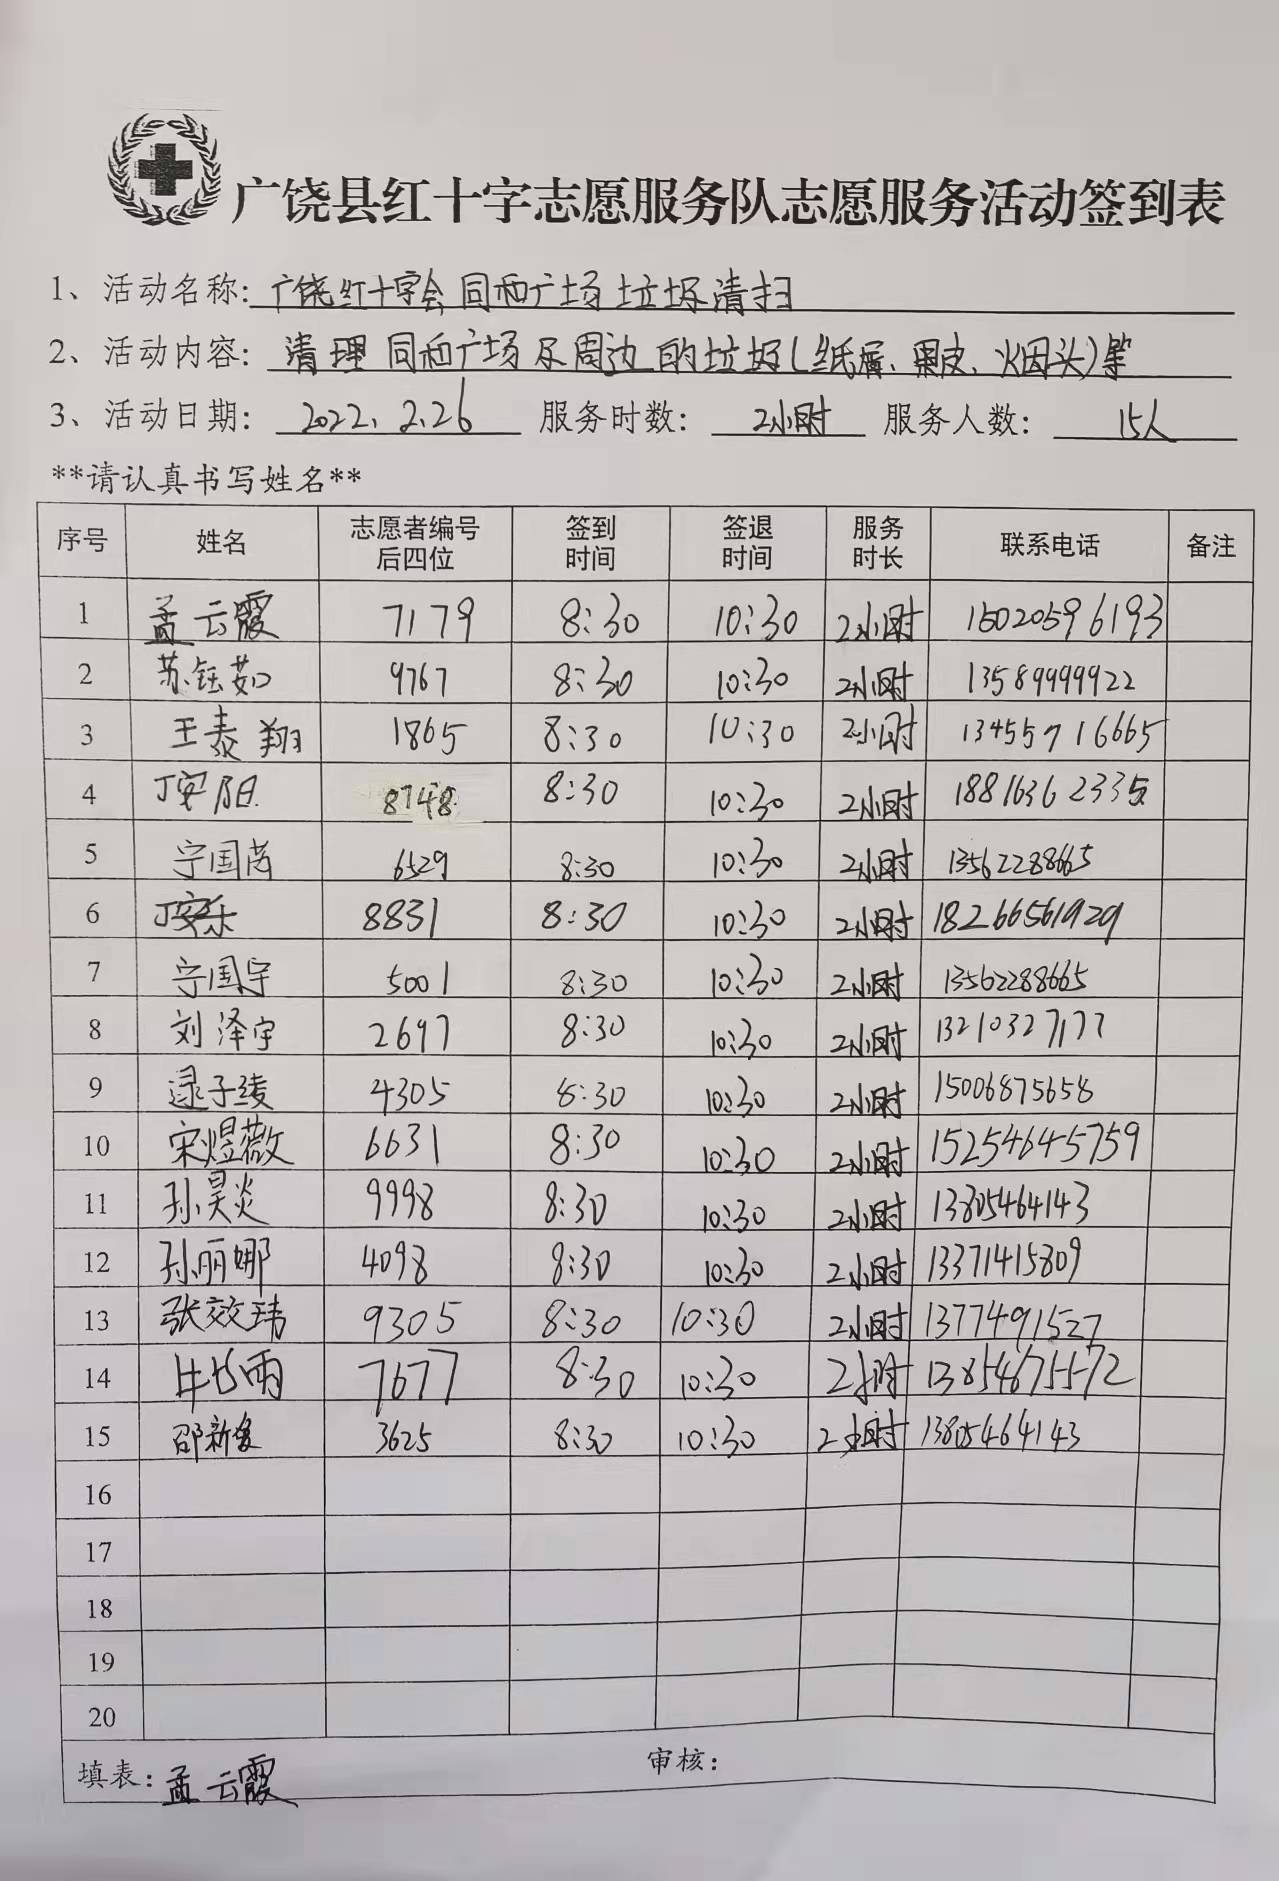 广饶县红十字志愿服务队志愿服务活动签到表
1、活动名称: 广饶红十字会同和广场垃圾清扫
2、活动内容: 清理同和广场及周边的垃圾(纸屑、果皮、烟头)等
3、活动日期: 2022.2.26 服务时数: 2小时 服务人数: 15人
**请认真书写姓名**
序号 姓名 志愿者编号后四位 签到时间 签退时间 服务时长 联系电话 备注
1 孟云霞 7179 8:30 10:30 2小时 15020596193
2 苏钰茹 9767 8:30 10:30 2小时 13589999922
3 王泰翔 1865 8:30 10:30 2小时 13455716665
4 丁安阳 8748 8:30 10:30 2小时 18816362335
5 宁国芮 6529 8:30 10:30 2小时 13562288665
6 丁安乐 8831 8:30 10:30 2小时 18266561929
7 宁国宇 5001 8:30 10:30 2小时 13562288665
8 刘泽宇 2697 8:30 10:30 2小时 13210327177
9 逯子绫 4305 8:30 10:30 2小时 15006875658
10 宋煜薇 6631 8:30 10:30 2小时 15254645759
11 孙昊炎 9998 8:30 10:30 2小时 13805464143
12 孙丽娜 4098 8:30 10:30 2小时 13371415809
13 张效玮 9305 8:30 10:30 2小时 13774491527
14 7677 8:30 10:30 2小时 13854675572
15 邵新 3625 8:30 10:30 2小时 13805464143
16
17
18
19
20
填表: 孟云霞 审核: